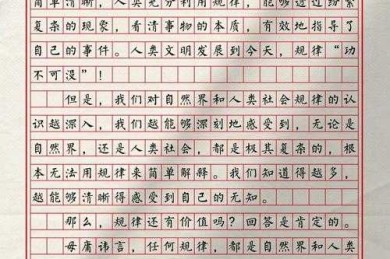 简单清晰，人类充分利用规律，能够透过纷繁
复杂的现象，看清事物的本质，有效地指导了
自己的事件。人类文明发展到今天，规律“功
不可没”！
但是，我们对自然界和人类社会规律的认
识越深入，我们越能够深刻地感受到，无论是
自然界，还是人类社会，都是极其复杂的，根
本无法用规律来简单解释。我们知道得越多，
越能够清晰得感受到自己的无知。
那么，规律还有价值吗？回答是肯定的。
毋庸讳言，任何规律，都是自然界和人类